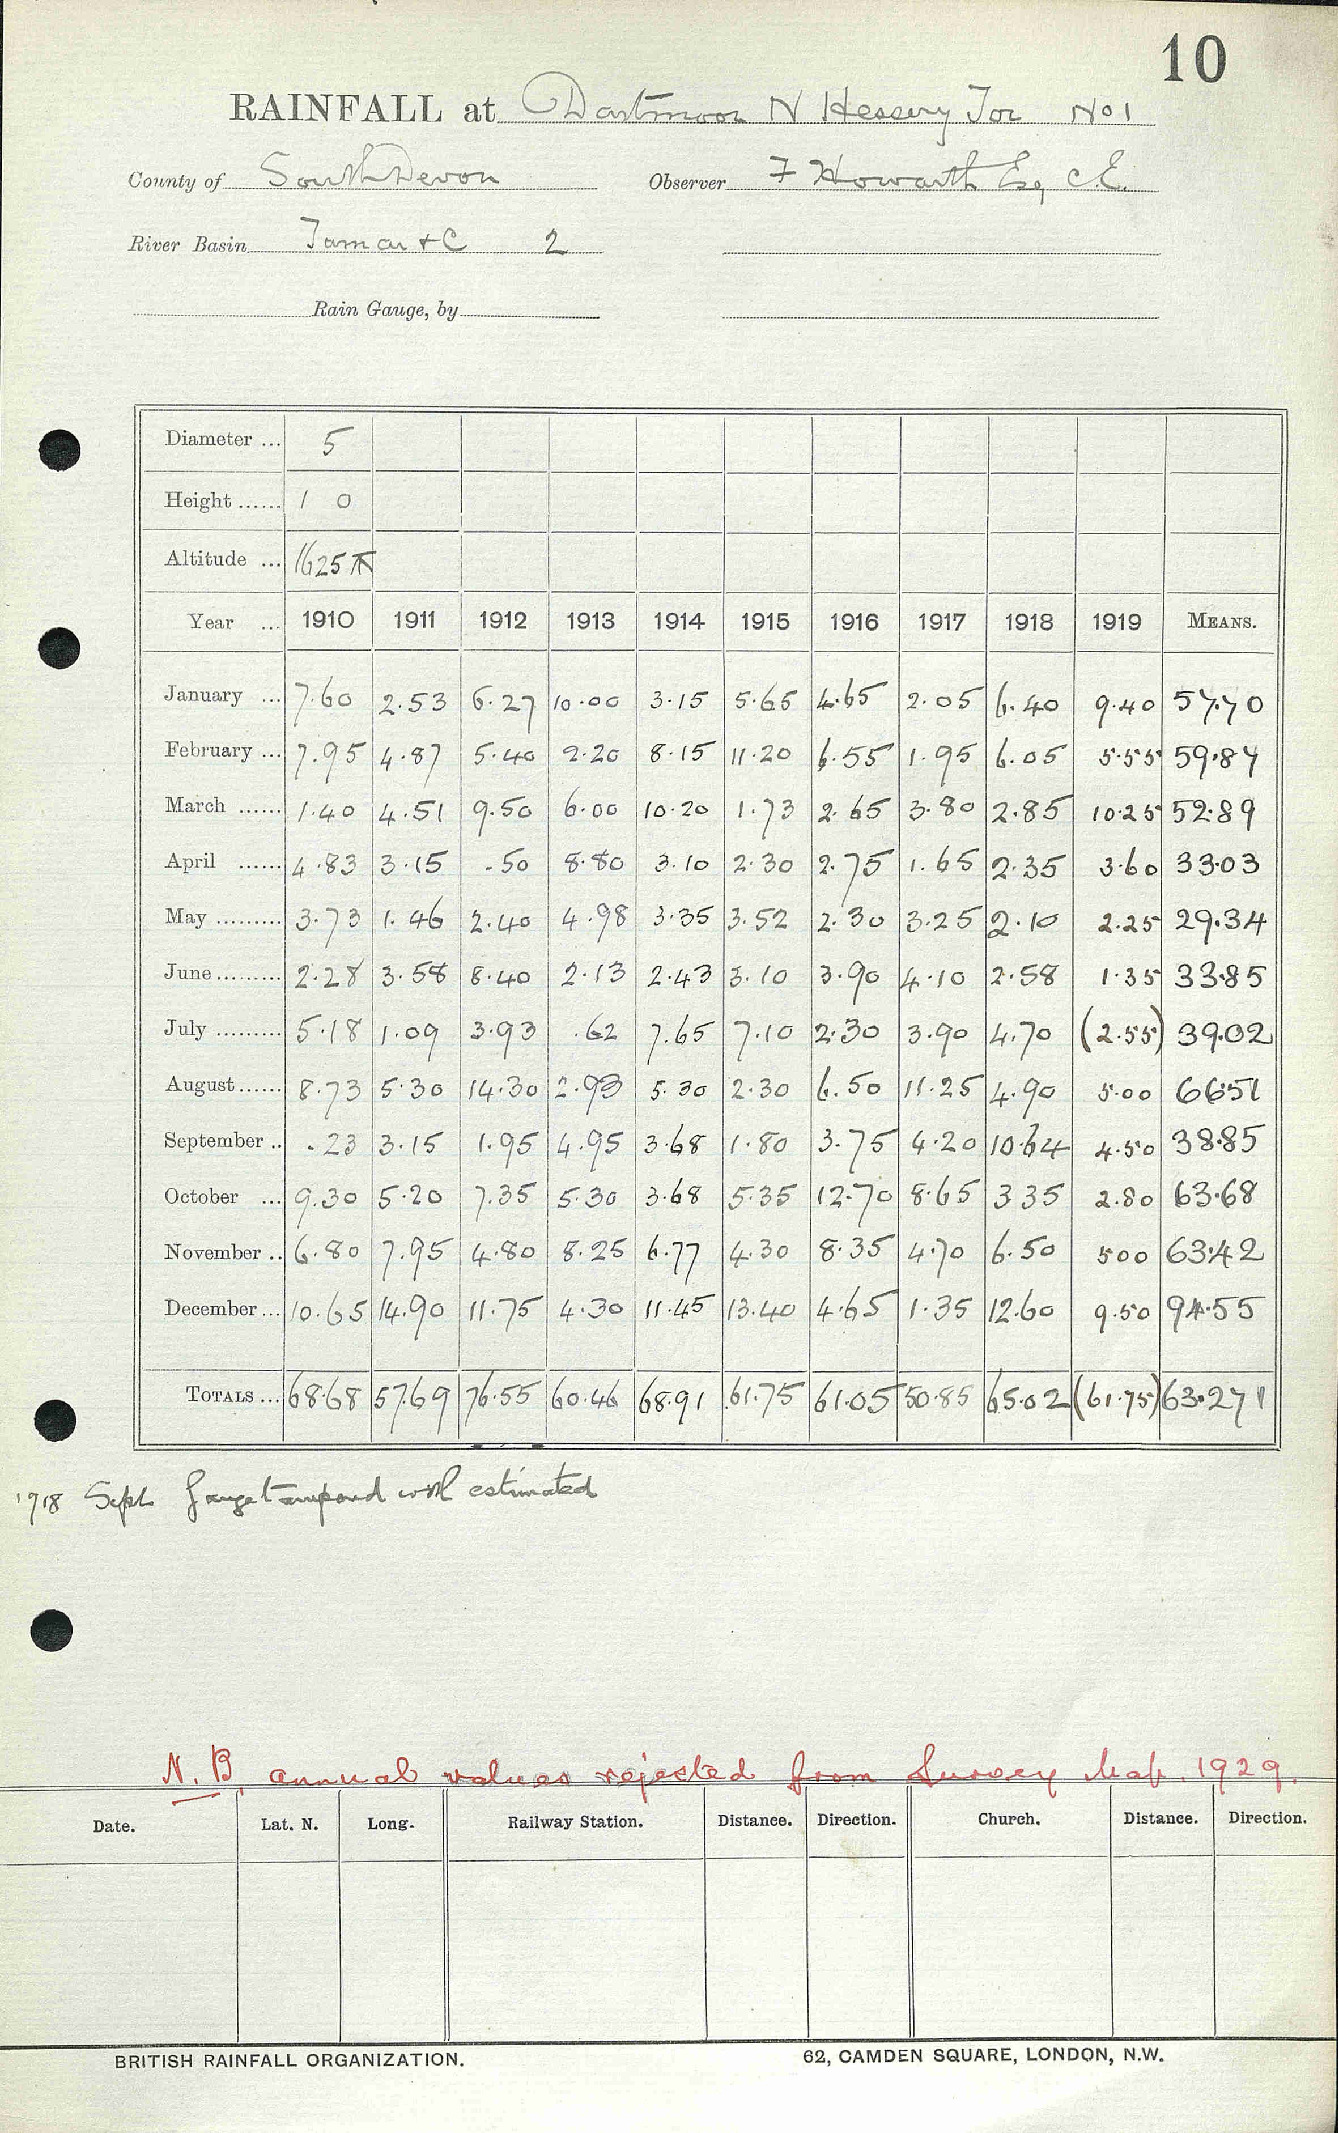 10
RAINFALL at Dartmoor N Hessery Tor No 1
County of South Devon Observer F Howarth Esq C.E.
River Basin Tamar & C 2
Rain Gauge, by
Diameter ... 5
Height ...... 1 0
Altitude ... 1625 ft
Year ... 1910 1911 1912 1913 1914 1915 1916 1917 1918 1919 MEANS.
January ... 7.60 2.53 6.27 10.00 3.15 5.65 4.65 2.05 6.40 9.40 57.70
February ... 7.95 4.87 5.40 2.20 8.15 11.20 6.55 1.95 6.05 5.55 59.87
March ...... 1.40 4.51 9.50 6.00 10.20 1.73 2.65 3.80 2.85 10.25 52.89
April ...... 4.83 3.15 .50 8.80 3.10 2.30 2.75 1.65 2.35 3.60 33.03
May ......... 3.73 1.46 2.40 4.98 3.35 3.52 2.30 3.25 2.10 2.25 29.34
June ......... 2.28 3.58 8.40 2.13 2.43 3.10 3.90 4.10 2.58 1.35 33.85
July ......... 5.18 1.09 3.93 .62 7.65 7.10 2.30 3.90 4.70 (2.55) 39.02
August ...... 8.73 5.30 14.30 2.93 5.30 2.30 6.50 11.25 4.90 5.00 66.51
September .. .23 3.15 1.95 4.95 3.68 1.80 3.75 4.20 10.64 4.50 38.85
October ... 9.30 5.20 7.35 5.30 3.68 5.35 12.70 8.65 3 35 2.80 63.68
November .. 6.80 7.95 4.80 8.25 6.77 4.30 8.35 4.70 6.50 5 00 63.42
December ... 10.65 14.90 11.75 4.30 11.45 13.40 4.65 1.35 12.60 9.50 94.55
TOTALS ... 68.68 57.69 76.55 60.46 68.91 61.75 61.05 50.85 65.02 (61.75) 63.271
1918 Sept. gauge tampered with estimated
N.B. annual values rejected from Survey Map. 1929.
Date. Lat. N. Long. Railway Station. Distance. Direction. Church. Distance. Direction.
BRITISH RAINFALL ORGANIZATION. 62, CAMDEN SQUARE, LONDON, N.W.